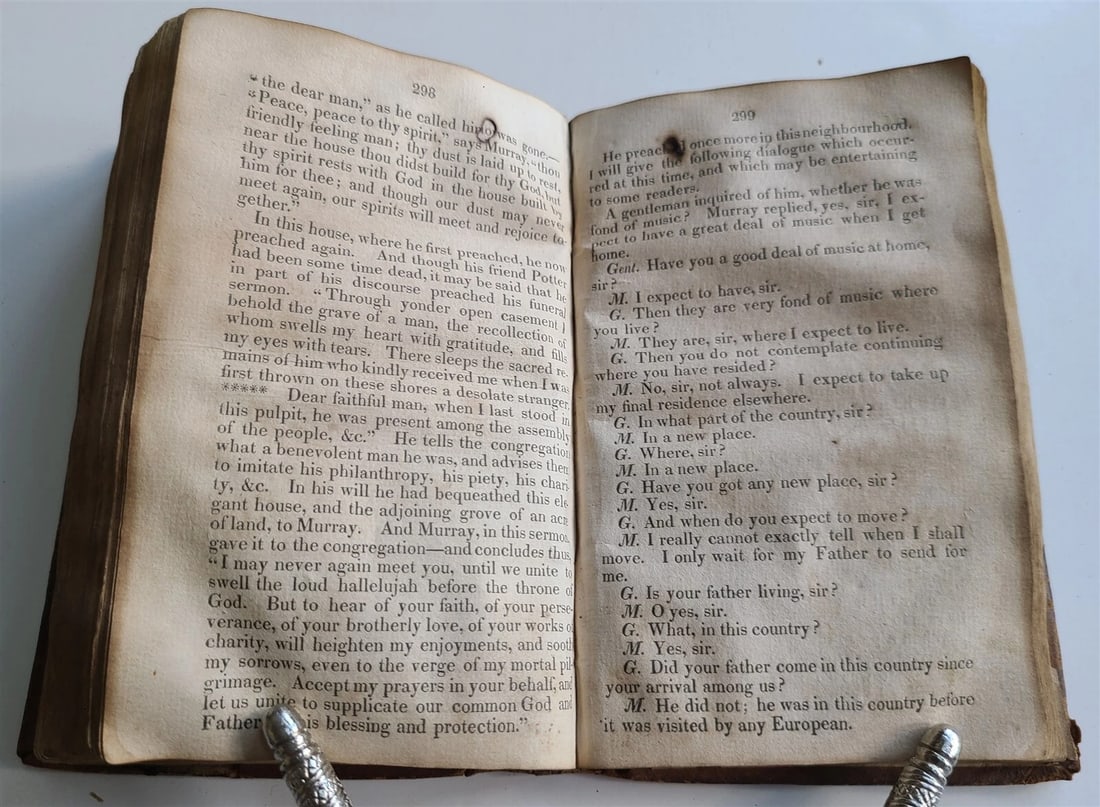 298
"the dear man," as he called him, was gone,—
"Peace, peace to thy spirit," says Murray, "thou
friendly feeling man; thy dust is laid up to rest,
near the house thou didst build for thy God, but
thy spirit rests with God in the house built by
him for thee; and though our dust may never
meet again, our spirits will meet and rejoice to-
gether."
In this house, where he first preached, he now
preached again. And though his friend Potter
had been some time dead, it may be said that he
in part of his discourse preached his funeral
sermon. "Through yonder open casement I
behold the grave of a man, the recollection of
whom swells my heart with gratitude, and fills
my eyes with tears. There sleeps the sacred re-
mains of him who kindly received me when I was
first thrown on these shores a desolate stranger.
***** Dear faithful man, when I last stood in
this pulpit, he was present among the assembly
of the people, &c." He tells the congregation
what a benevolent man he was, and advises them
to imitate his philanthropy, his piety, his chari-
ty, &c. In his will he had bequeathed this ele-
gant house, and the adjoining grove of an acre
of land, to Murray. And Murray, in this sermon,
gave it to the congregation—and concludes thus,
"I may never again meet you, until we unite to
swell the loud hallelujah before the throne of
God. But to hear of your faith, of your perse-
verance, of your brotherly love, of your works of
charity, will heighten my enjoyments, and sooth
my sorrows, even to the verge of my mortal pil-
grimage. Accept my prayers in your behalf, and
let us unite to supplicate our common God and
Father is blessing and protection."
299
He preached once more in this neighbourhood.
I will give the following dialogue which occur-
red at this time, and which may be entertaining
to some readers.
A gentleman inquired of him, whether he was
fond of music? Murray replied, yes, sir, I ex-
pect to have a great deal of music when I get
home.
Gent. Have you a good deal of music at home,
sir?
M. I expect to have, sir.
G. Then they are very fond of music where
you live?
M. They are, sir, where I expect to live.
G. Then you do not contemplate continuing
where you have resided?
M. No, sir, not always. I expect to take up
my final residence elsewhere.
G. In what part of the country, sir?
M. In a new place.
G. Where, sir?
M. In a new place.
G. Have you got any new place, sir?
M. Yes, sir.
G. And when do you expect to move?
M. I really cannot exactly tell when I shall
move. I only wait for my Father to send for
me.
G. Is your father living, sir?
M. O yes, sir.
G. What, in this country?
M. Yes, sir.
G. Did your father come in this country since
your arrival among us?
M. He did not; he was in this country before
it was visited by any European.